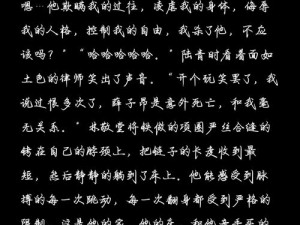 嗯…他欺瞒我的过往，凌虐我的身体，侮辱
我的人格，控制我的自由，我杀了他，不应
该吗？”“哈哈哈哈哈。”陆青时看着面如
土色的律师笑出了声音。“开个玩笑罢了，我
说过很多次了，薛子昂是意外死亡，和我毫
无关系。”林敬堂将铁做的项圈严丝合缝的
锁在自己的脖颈上，把链子的长度收到最
短，然后静静的躺到了床上。他能感受到脉
搏的每一次跳动，每一次翻身都受到严格的